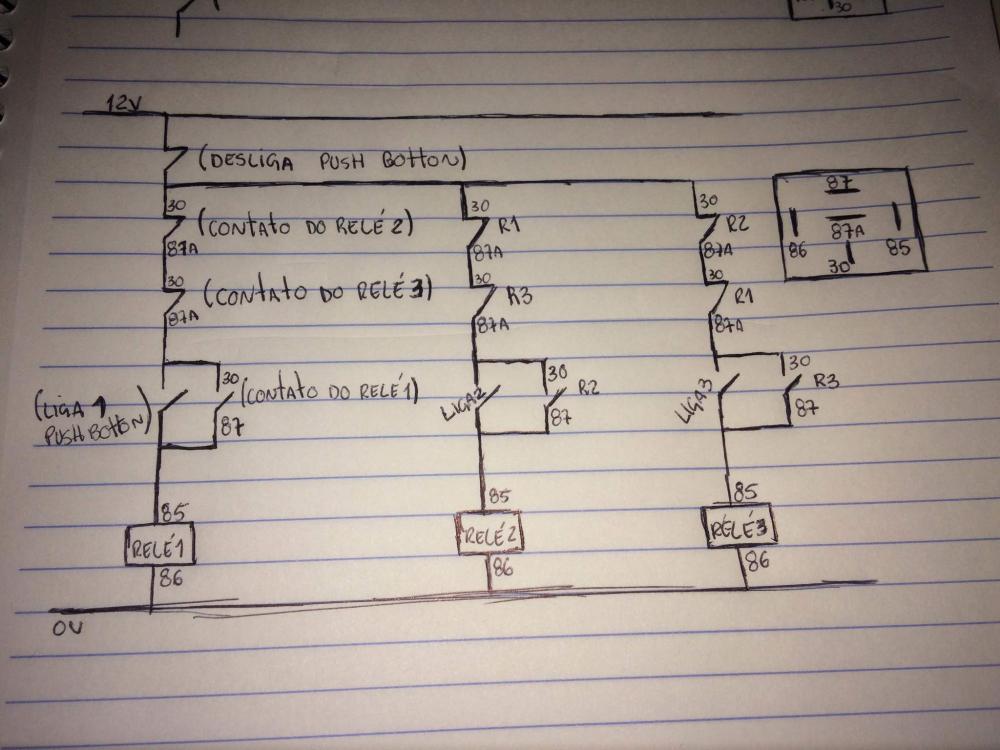 30
12V
(DESLIGA PUSH BOTTON)
30
(CONTATO DO RELÉ 2)
87A
30
(CONTATO DO RELÉ 3)
87A
30
(CONTATO DO RELÉ 1)
87
(LIGA 1
PUSH BOTTON)
85
RELÉ 1
86
0V
30
R1
87A
30
R3
87A
30
R2
87
LIGA2
85
RELÉ 2
86
30
R2
87A
30
R1
87A
30
R3
87
LIGA3
85
RELÉ3
86
87
87A
86
85
30